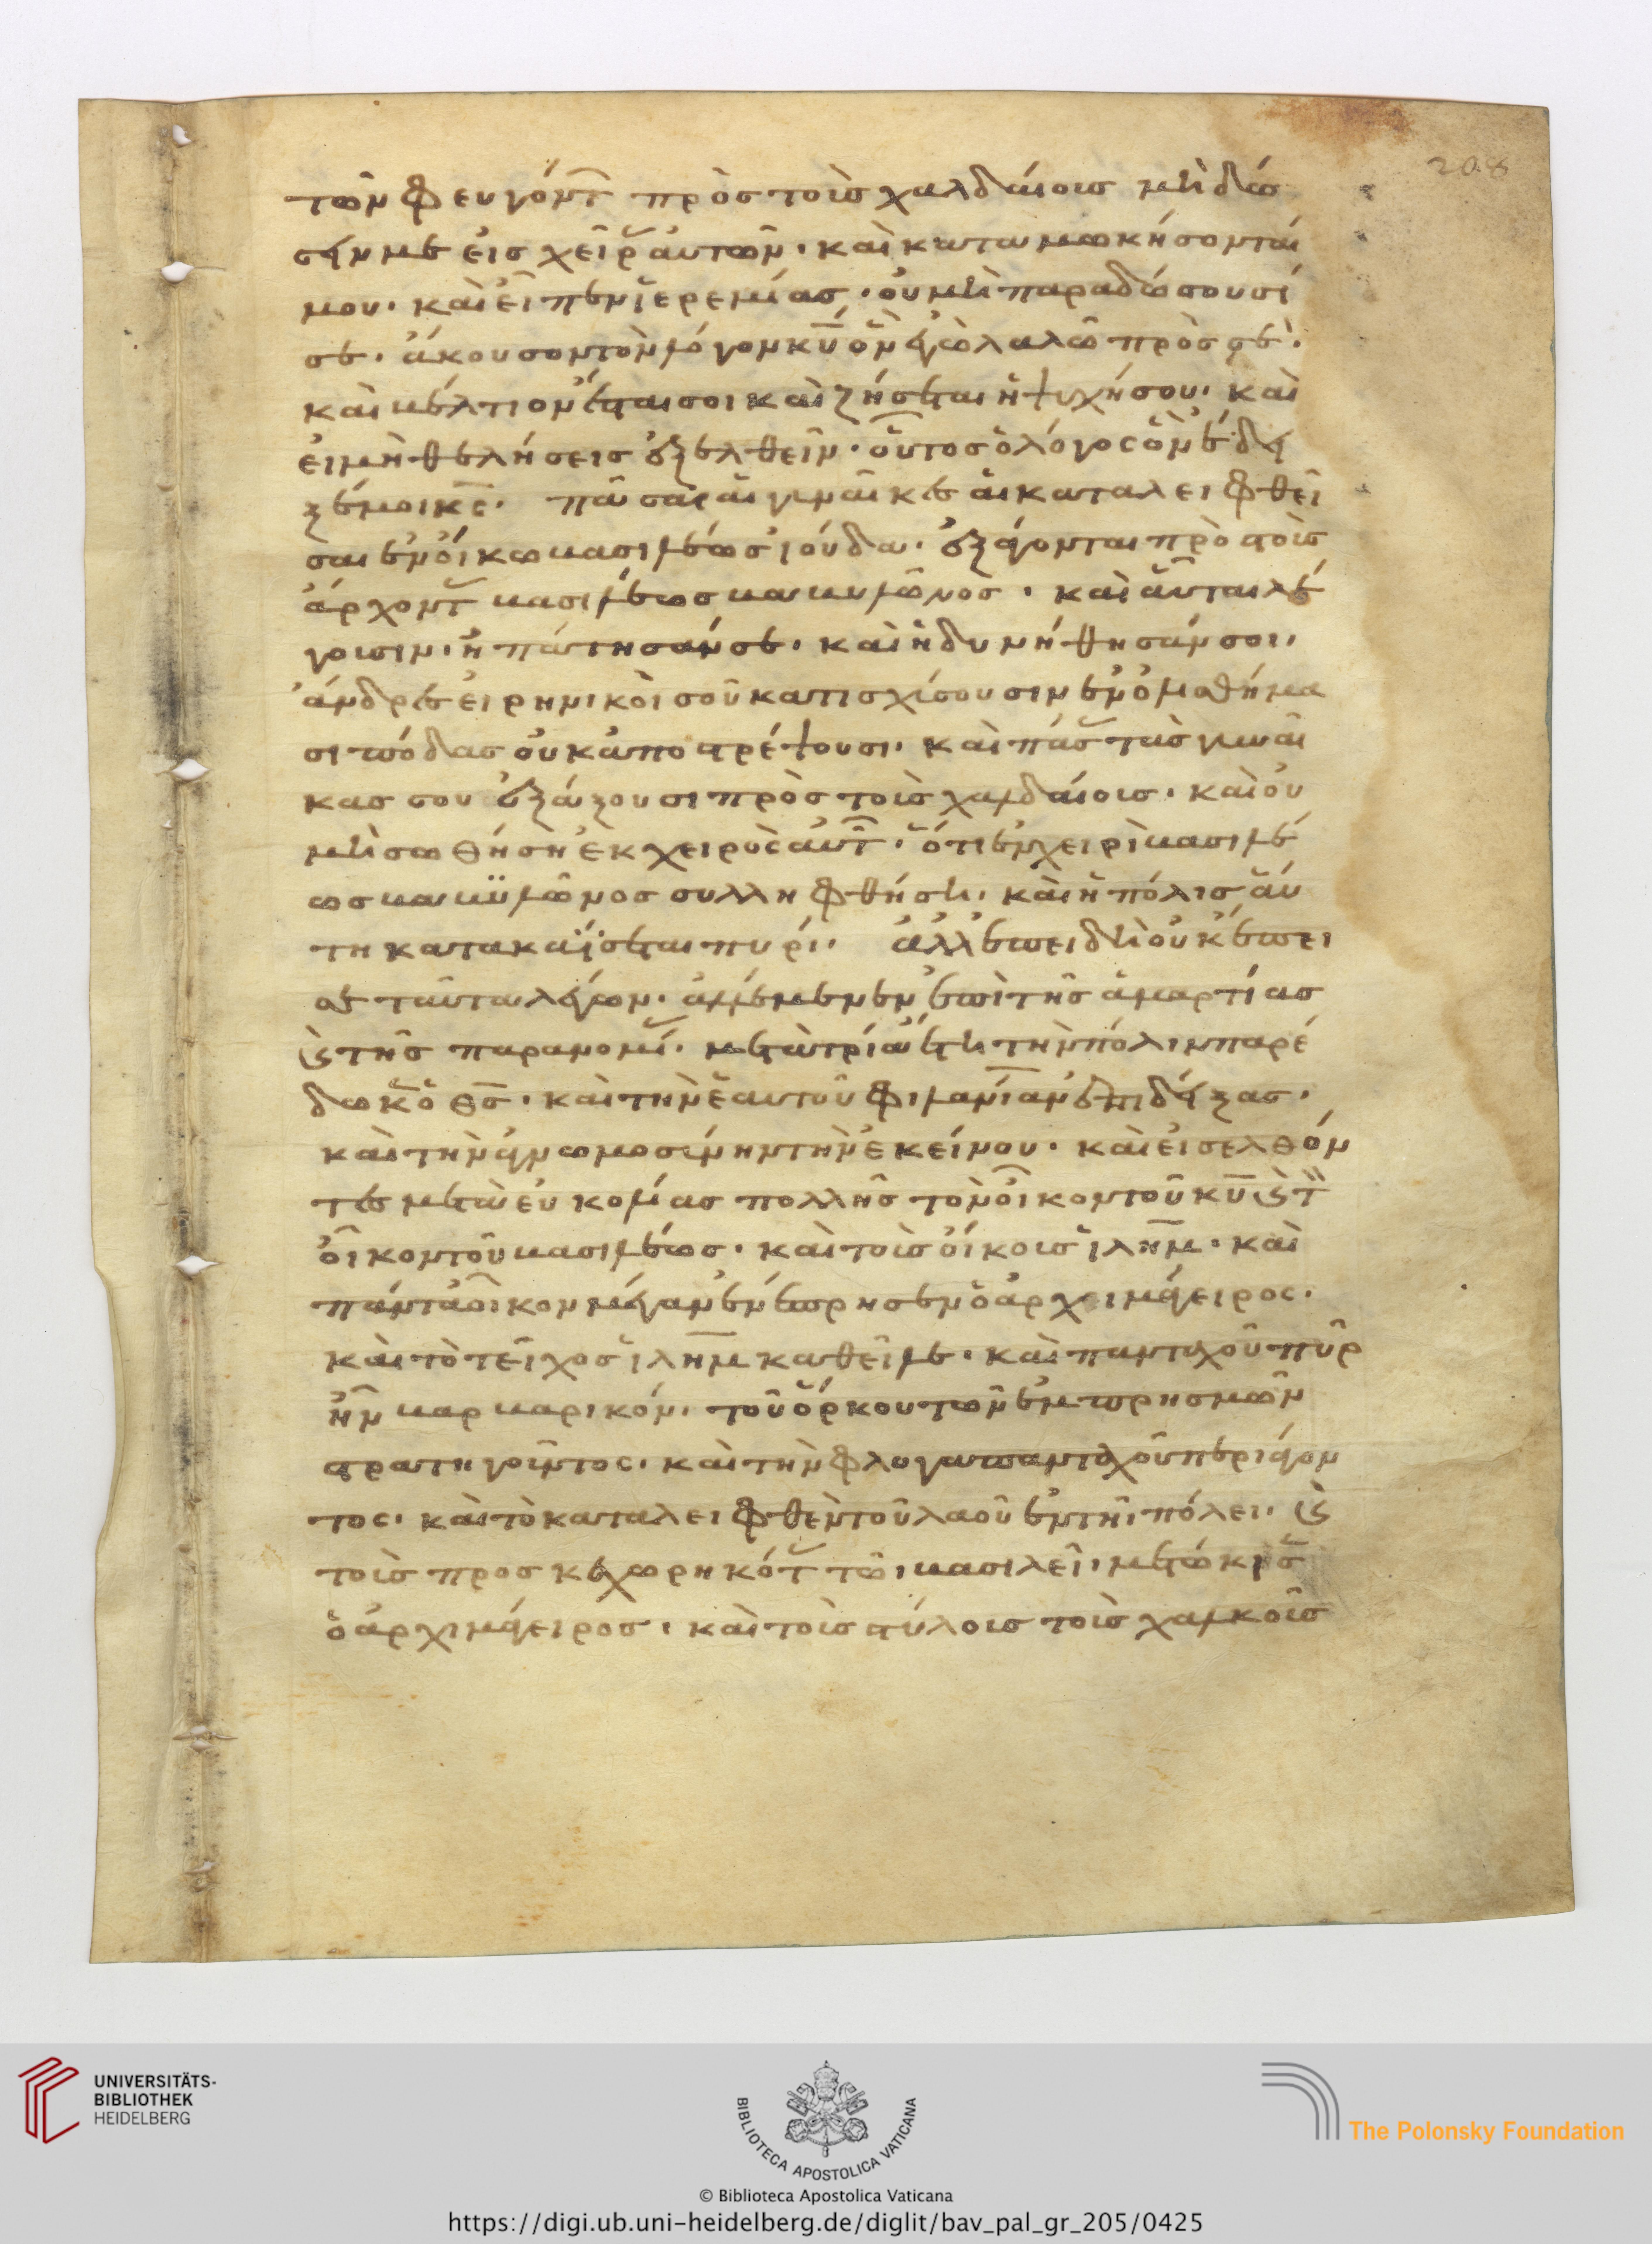 208
τῶν φευγόντ πρὸς τοὺς χαλδαίους μὴ δώ
σήν με εἰς χεῖρ αὐτῶν· καὶ καταμωκήσονταί
μου· καὶ εἶπεν ἱερεμίας· οὐ μὴ παραδώσουσί
σε· ἄκουσον τὸν λόγον κ̅υ̅ ὃν ἐγὼ λαλῶ πρὸς σέ·
καὶ βέλτιον ἔσται σοι καὶ ζήσεται ἡ ψυχή σου· καὶ
εἰ μὴ θελήσεις ἐξελθεῖν· οὗτος ὁ λόγος ὃν ἔδει
ξέ μοι κ̅ς̅· πᾶσαι αἱ γυναῖκες αἱ καταλειφθεῖ
σαι ἐν οἴκω βασιλέως ἰούδα· ἐξάγονται πρὸς τοὺς
ἄρχοντ βασιλέως βαβυλῶνος· καὶ αὗται λέ
γουσιν· ἠπάτησάν σε· καὶ ἠδυνήθησάν σοι·
ἄνδρες εἰρηνικοί σου κατισχύσουσιν ἐν ὀλισθήμα
σι πόδας οὐκ ἀποστρέψουσι· καὶ πάσ τὰς γυναῖ
κας σου ἐξάξουσι πρὸς τοὺς χαλδαίους· καὶ οὐ
μὴ σωθήση ἐκ χειρὸς αὐτ· ὅτι ἐν χειρὶ βασιλέ
ως βαβυλῶνος συλληφθήση· καὶ ἡ πόλις αὕ
τη κατακαήσεται πυρί· ἀλλ᾽ ἐπειδὴ οὐκ ἔπει
σε ταῦτα λέγων· ἀλλ᾽ ἔμενεν ἐπὶ τῆς ἁμαρτίας
καὶ τῆς παρανομί· μετὰ τρία ἔτη τὴν πόλιν παρέ
δωκ ὁ θ̅ς̅· καὶ τὴν ἑαυτοῦ φιλανίαν ἐπιδείξας·
καὶ τὴν ἀγνωμοσύνην τὴν ἐκείνου· καὶ εἰσελθόν
τες μετὰ εὐκολίας πολλῆς τὸν οἶκον τοῦ κ̅υ̅ καὶ τ
οἶκον τοῦ βασιλέως· καὶ τοὺς οἴκους ἰλ̅η̅μ̅· καὶ
πάντα οἶκον μέγαν ἐνέπρησεν ὁ ἀρχιμάγειρος·
καὶ τὸ τεῖχος ἰλ̅η̅μ̅ καθεῖλε· καὶ πανταχοῦ πῦρ
ἦν βαρβαρικόν· τοῦ ὅρκου τῶν ἐμπρησμῶν
στρατηγοῦντος· καὶ τὴν φλόγα πανταχοῦ περιάγον
τος· καὶ τὸ καταλειφθὲν τοῦ λαοῦ ἐν τῆι πόλει· καὶ
τοὺς προσκεχωρηκότ τῶι βασιλεῖ· μετώκισ
ὁ ἀρχιμάγειρος· καὶ τοὺς στύλους τοὺς χαλκοῦς
UNIVERSITÄTS-
BIBLIOTHEK
HEIDELBERG
BIBLIOTECA APOSTOLICA VATICANA
The Polonsky Foundation
© Biblioteca Apostolica Vaticana
https://digi.ub.uni-heidelberg.de/diglit/bav_pal_gr_205/0425